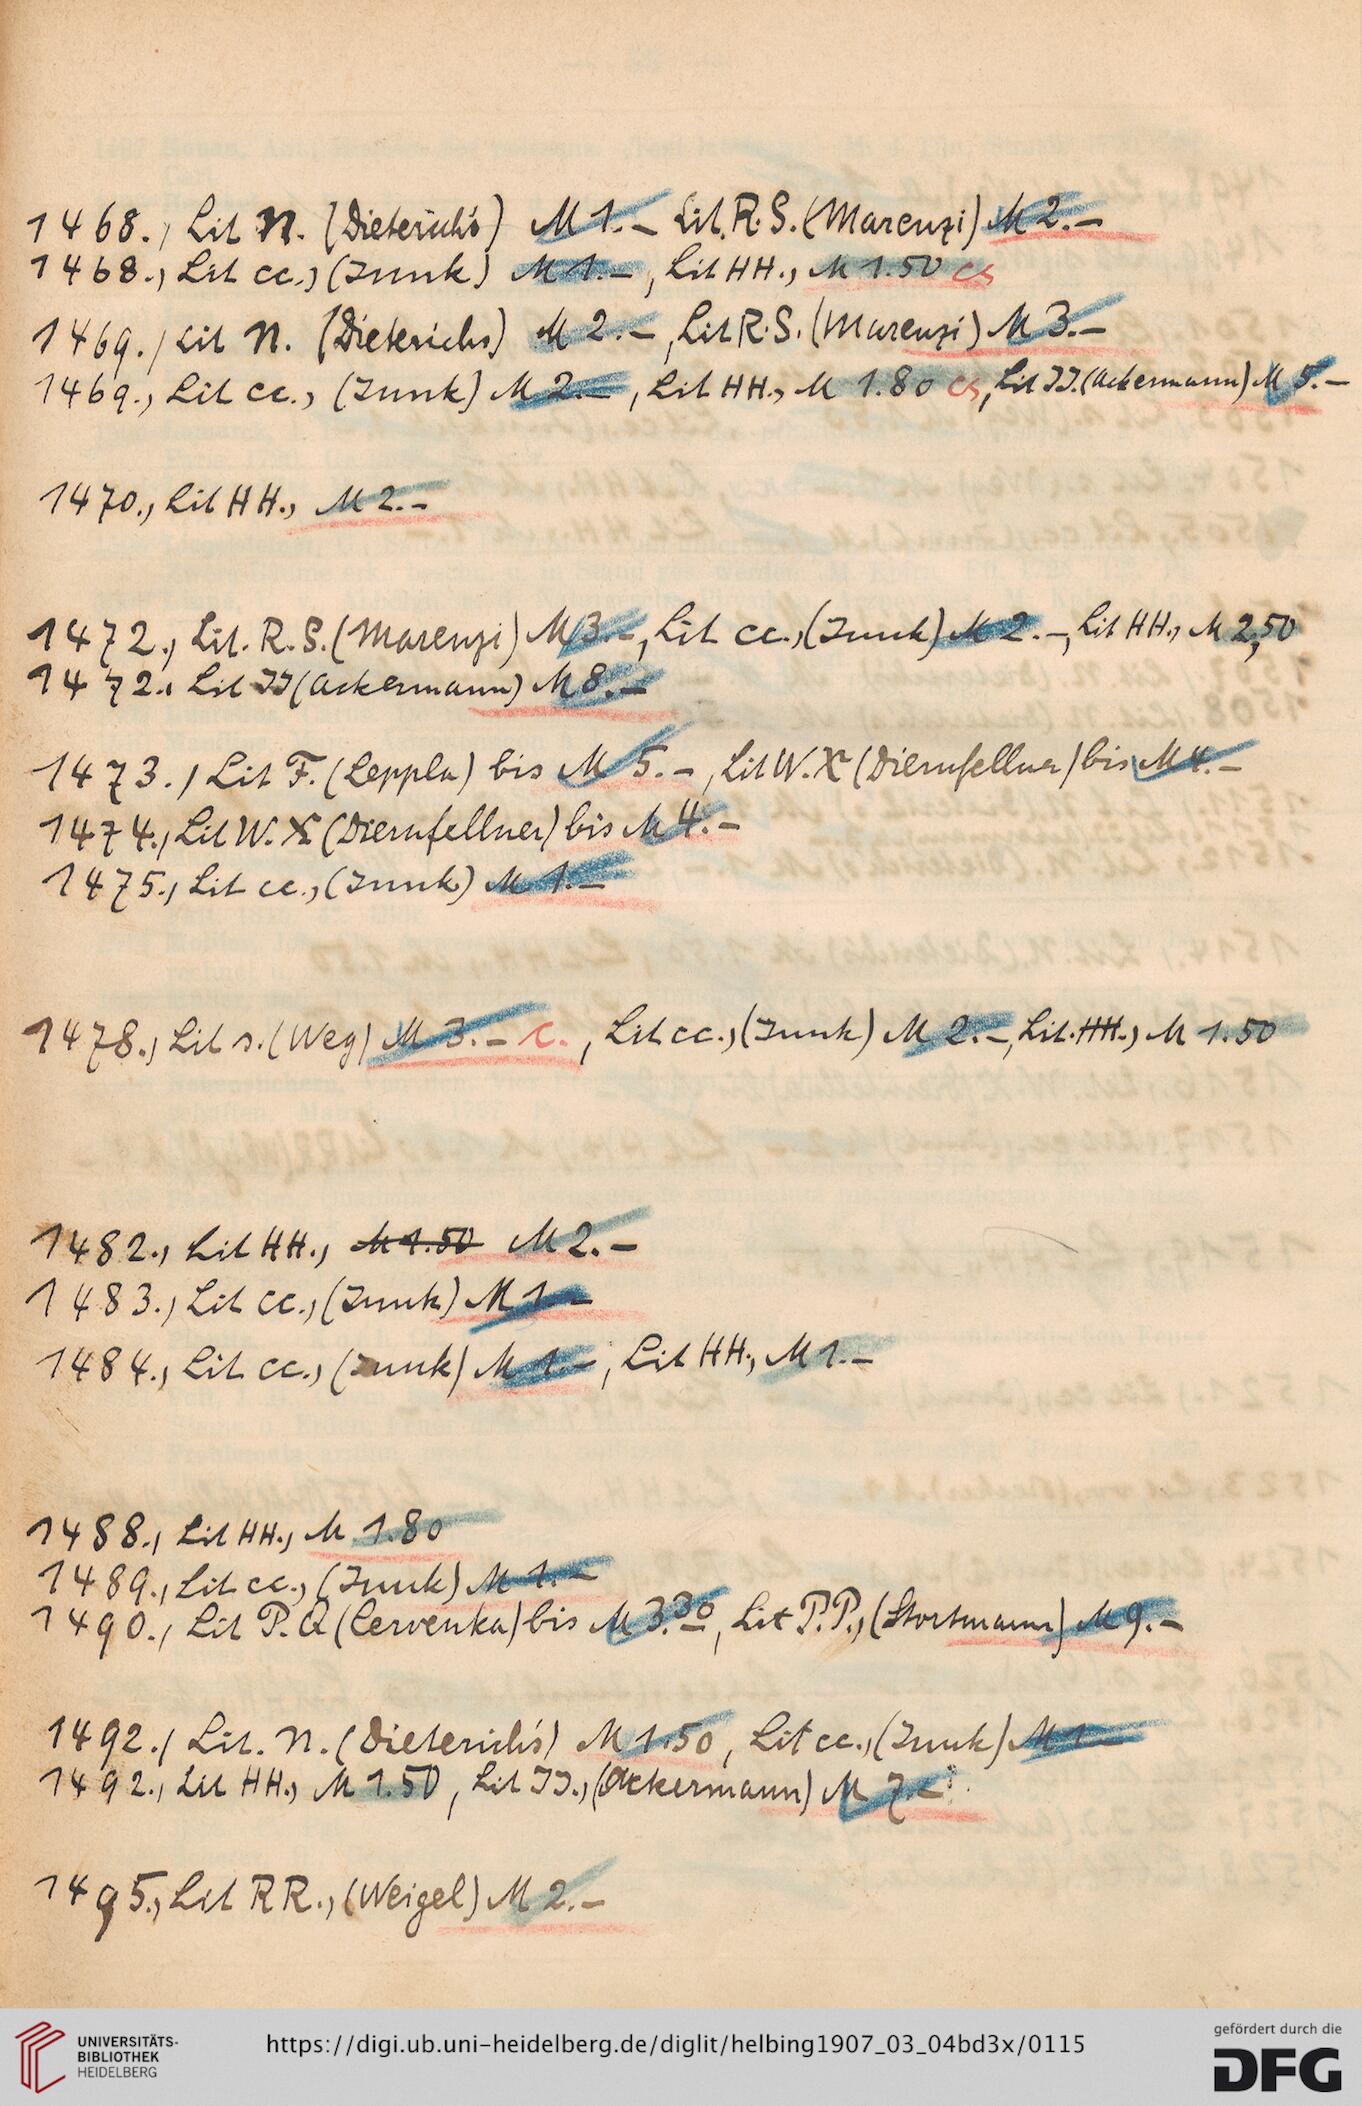 1468., Lit N. (Dieterichs) M 1.– Lit. R. S. (Marenzi) M 2.–
1468., Lit cc., (Junk) M 1.–, Lit HH., M 1.50 cs
1469., Lit N. (Dieterichs) M 2.–, Lit R. S. (Marenzi) M 3.–
1469., Lit cc., (Junk) M 2.–, Lit HH., M 1.80 cs, Lit JJ. (Ackermann) M 5.–
1470., Lit HH., M 2.–
1472., Lit. R. S. (Marenzi) M 3.–, Lit cc., (Junk) M 2.–, Lit HH., M 2,50
1472., Lit JJ (Ackermann) M 8.–
1473., Lit F. (Leppla) bis M 5.–, Lit W. X (Diernfellner) bis M 4.–
1474., Lit W. X (Diernfellner) bis M 4.–
1475., Lit cc., (Junk) M 1.–
1478., Lit s. (Weg) M 3.– c., Lit cc., (Junk) M 2.–, Lit. HH., M 1.50
1482., Lit HH., M 1.50 M 2.–
1483., Lit cc., (Junk) M 1.–
1484., Lit cc., (Junk) M 1.–, Lit HH., M 1.–
1488., Lit HH., M 1.80
1489., Lit cc., (Junk) M 1.–
1490., Lit P. Q (Cervenka) bis M 3.30, Lit P.P., (Stortmann) M 9.–
1492., Lit. N. (Dieterichs) M 1.50, Lit cc., (Junk) M 1.–
1492., Lit HH., M 1.50, Lit JJ., (Ackermann) M 7.
1495., Lit RR., (Weigel) M 2.–
UNIVERSITÄTS-
BIBLIOTHEK
HEIDELBERG
https://digi.ub.uni-heidelberg.de/diglit/helbing1907_03_04bd3x/0115
gefördert durch die
DFG